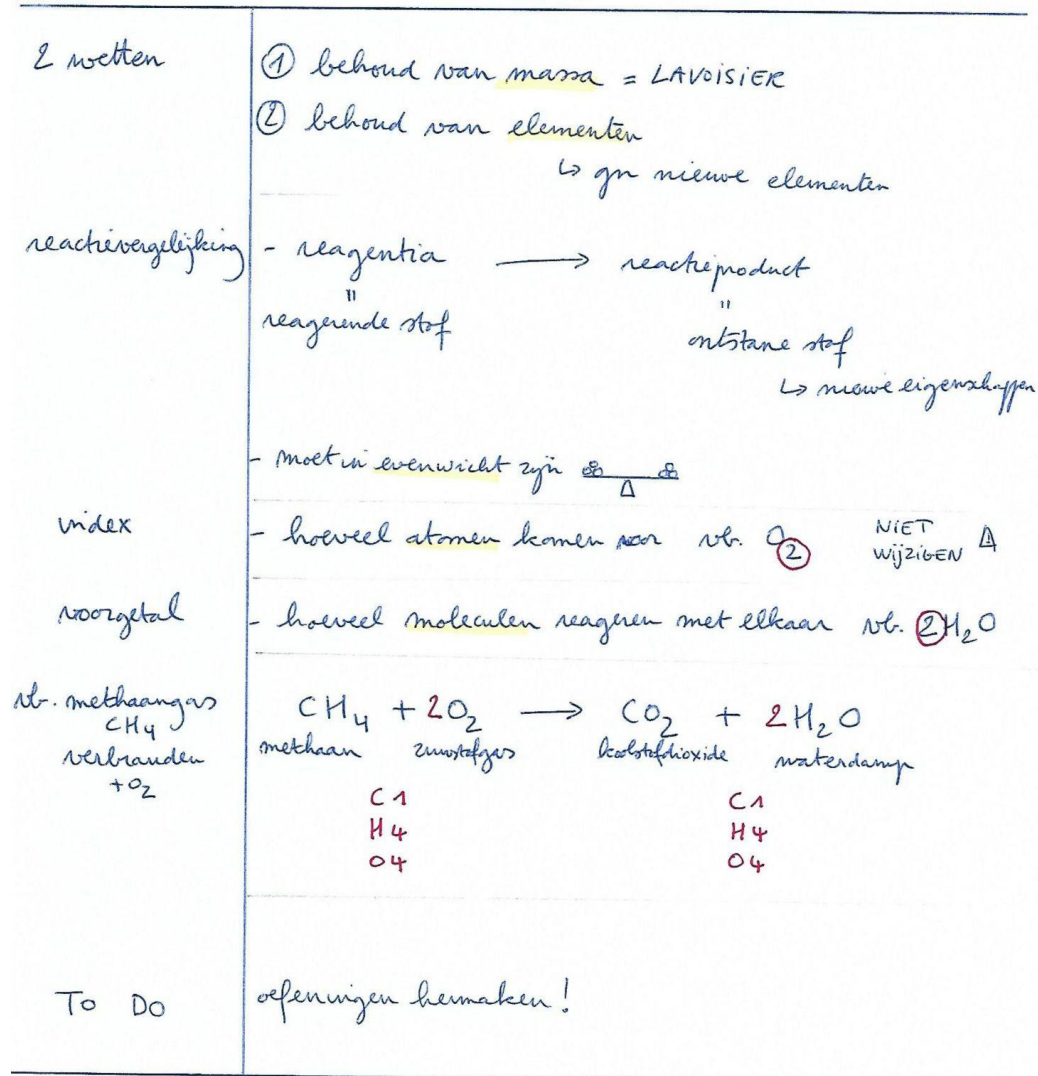 2 wetten
① behoud van massa = LAVOISIER
② behoud van elementen
↳ gn nieuwe elementen
reactievergelijking
- reagentia ⟶ reactieproduct
" "
reagerende stof ontstane stof
↳ nieuwe eigenschappen
- moet in evenwicht zijn
index
- hoeveel atomen komen voor vb. O₂ NIET
WIJZIGEN
voorgetal
- hoeveel moleculen reageren met elkaar vb. 2H₂O
vb. methaangas
CH₄
verbranden
+O₂
CH₄ + 2O₂ ⟶ CO₂ + 2H₂O
methaan zuurstofgas koolstofdioxide waterdamp
C1 C1
H4 H4
O4 O4
To Do
oefeningen hermaken!